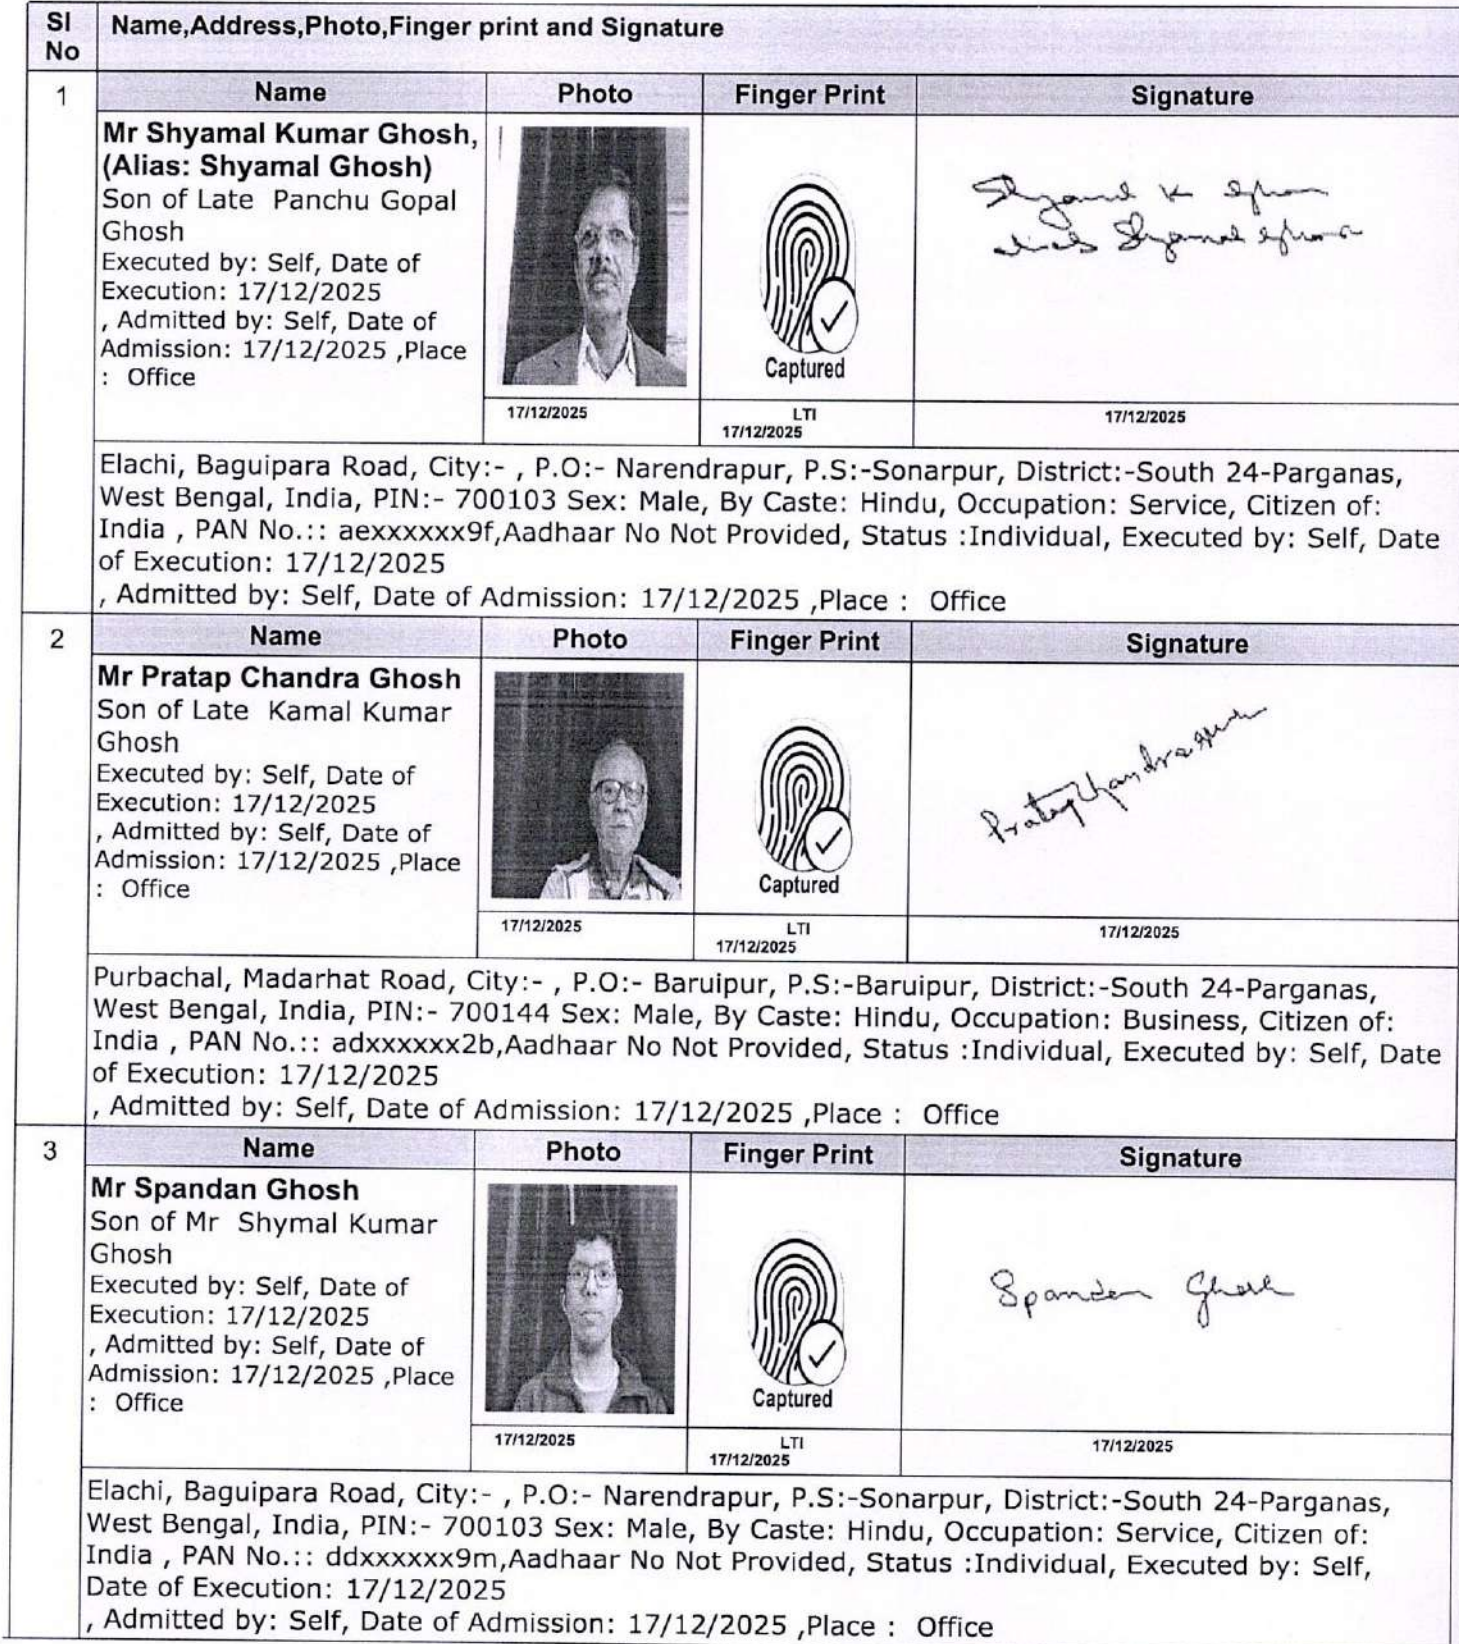 Sl No
Name,Address,Photo,Finger print and Signature
1
Name Photo Finger Print Signature
Mr Shyamal Kumar Ghosh,
(Alias: Shyamal Ghosh)
Son of Late Panchu Gopal
Ghosh
Executed by: Self, Date of
Execution: 17/12/2025
, Admitted by: Self, Date of
Admission: 17/12/2025 ,Place
: Office
Captured
Shyamal K Ghosh
alias Shyamal Ghosh
17/12/2025
LTI
17/12/2025
17/12/2025
Elachi, Baguipara Road, City:- , P.O:- Narendrapur, P.S:-Sonarpur, District:-South 24-Parganas,
West Bengal, India, PIN:- 700103 Sex: Male, By Caste: Hindu, Occupation: Service, Citizen of:
India , PAN No.:: aexxxxxx9f,Aadhaar No Not Provided, Status :Individual, Executed by: Self, Date
of Execution: 17/12/2025
, Admitted by: Self, Date of Admission: 17/12/2025 ,Place : Office
2
Name Photo Finger Print Signature
Mr Pratap Chandra Ghosh
Son of Late Kamal Kumar
Ghosh
Executed by: Self, Date of
Execution: 17/12/2025
, Admitted by: Self, Date of
Admission: 17/12/2025 ,Place
: Office
Captured
Pratap Chandra Ghosh
17/12/2025
LTI
17/12/2025
17/12/2025
Purbachal, Madarhat Road, City:- , P.O:- Baruipur, P.S:-Baruipur, District:-South 24-Parganas,
West Bengal, India, PIN:- 700144 Sex: Male, By Caste: Hindu, Occupation: Business, Citizen of:
India , PAN No.:: adxxxxxx2b,Aadhaar No Not Provided, Status :Individual, Executed by: Self, Date
of Execution: 17/12/2025
, Admitted by: Self, Date of Admission: 17/12/2025 ,Place : Office
3
Name Photo Finger Print Signature
Mr Spandan Ghosh
Son of Mr Shymal Kumar
Ghosh
Executed by: Self, Date of
Execution: 17/12/2025
, Admitted by: Self, Date of
Admission: 17/12/2025 ,Place
: Office
Captured
Spandan Ghosh
17/12/2025
LTI
17/12/2025
17/12/2025
Elachi, Baguipara Road, City:- , P.O:- Narendrapur, P.S:-Sonarpur, District:-South 24-Parganas,
West Bengal, India, PIN:- 700103 Sex: Male, By Caste: Hindu, Occupation: Service, Citizen of:
India , PAN No.:: ddxxxxxx9m,Aadhaar No Not Provided, Status :Individual, Executed by: Self,
Date of Execution: 17/12/2025
, Admitted by: Self, Date of Admission: 17/12/2025 ,Place : Office